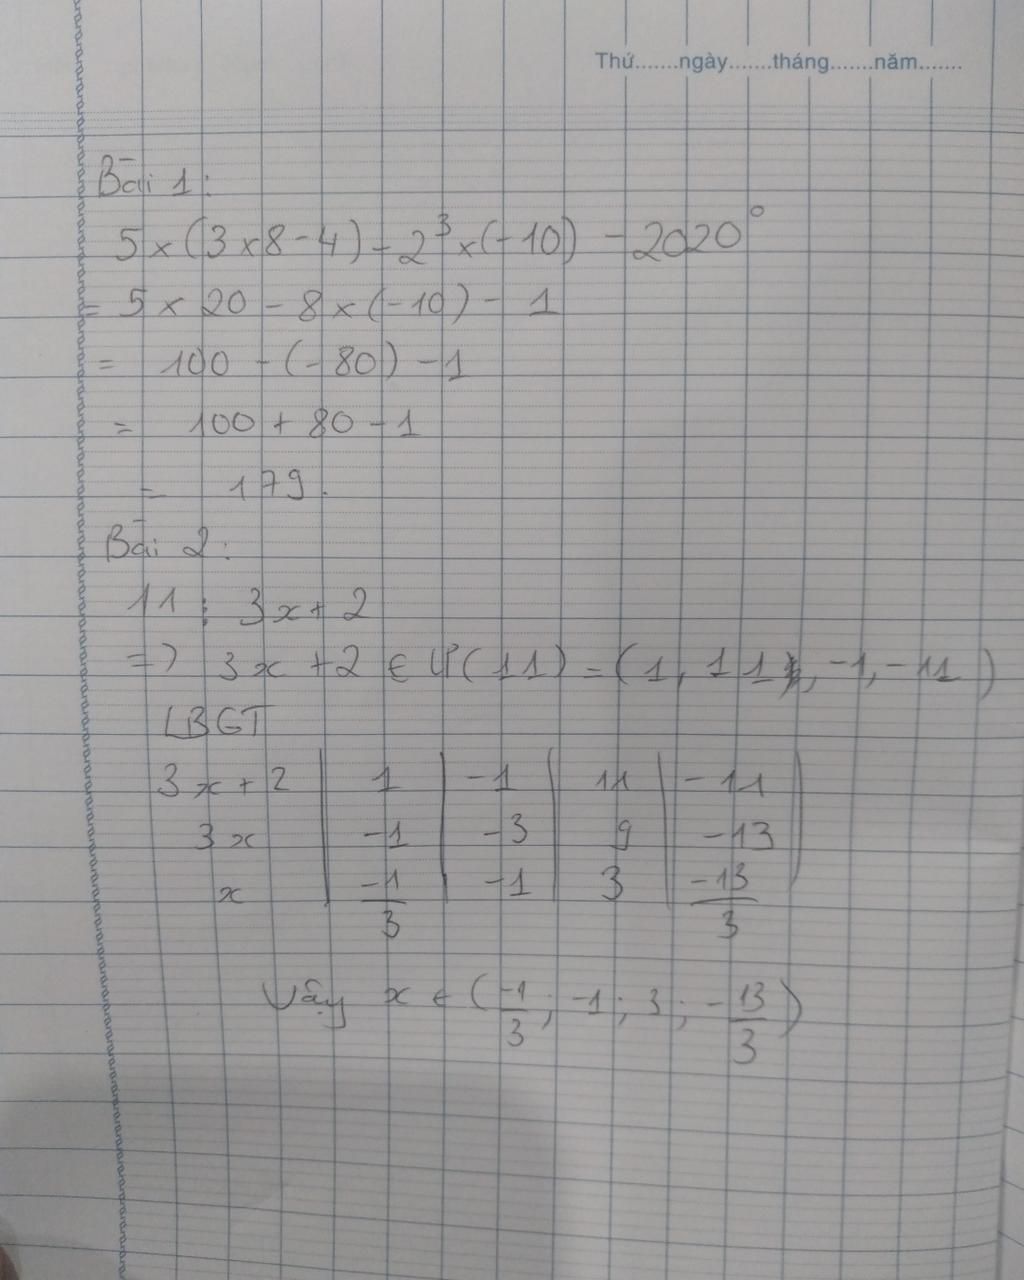 Thứ.......ngày.......tháng.......năm.......
Bài 1:
5 x (3 x 8 - 4) - 2³ x (-10) - 2020⁰
= 5 x 20 - 8 x (-10) - 1
= 100 - (-80) - 1
= 100 + 80 - 1
= 179.
Bài 2:
11 ⋮ 3x + 2
=> 3x + 2 ∈ Ư(11) = (1, 11, -1, -11)
LBGT
3x + 2 | 1 | -1 | 11 | -11 |
3x | -1 | -3 | 9 | -13 |
x | -1/3 | -1 | 3 | -13/3 |
Vậy x ∈ (-1/3; -1; 3; -13/3)